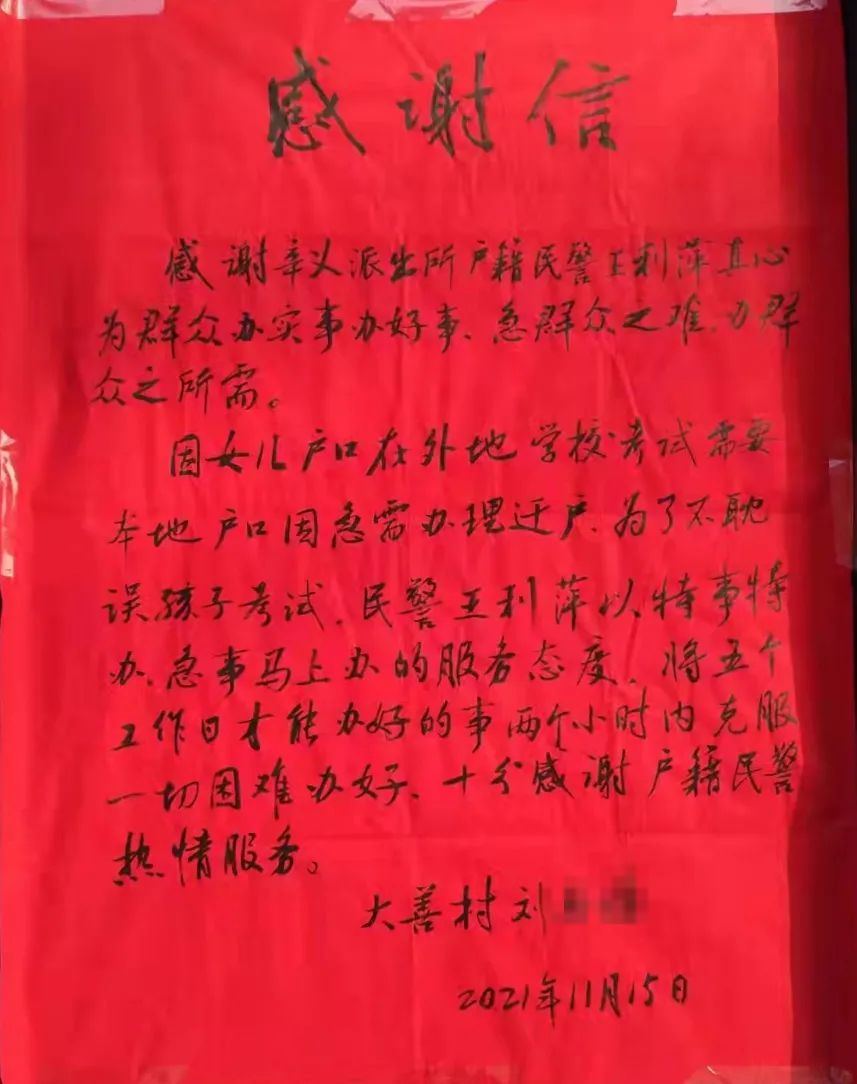 感谢信
感谢辛义派出所户籍民警王利萍真心
为群众办实事办好事、急群众之难、办群
众之所需。
因女儿户口在外地学校考试需要
本地户口因急需办理迁户、为了不耽
误孩子考试、民警王利萍以特事特
办、急事马上办的服务态度、将五个
工作日才能办好的事两个小时内克服
一切困难办好、十分感谢户籍民警
热情服务。
大善村刘
2021年11月15日